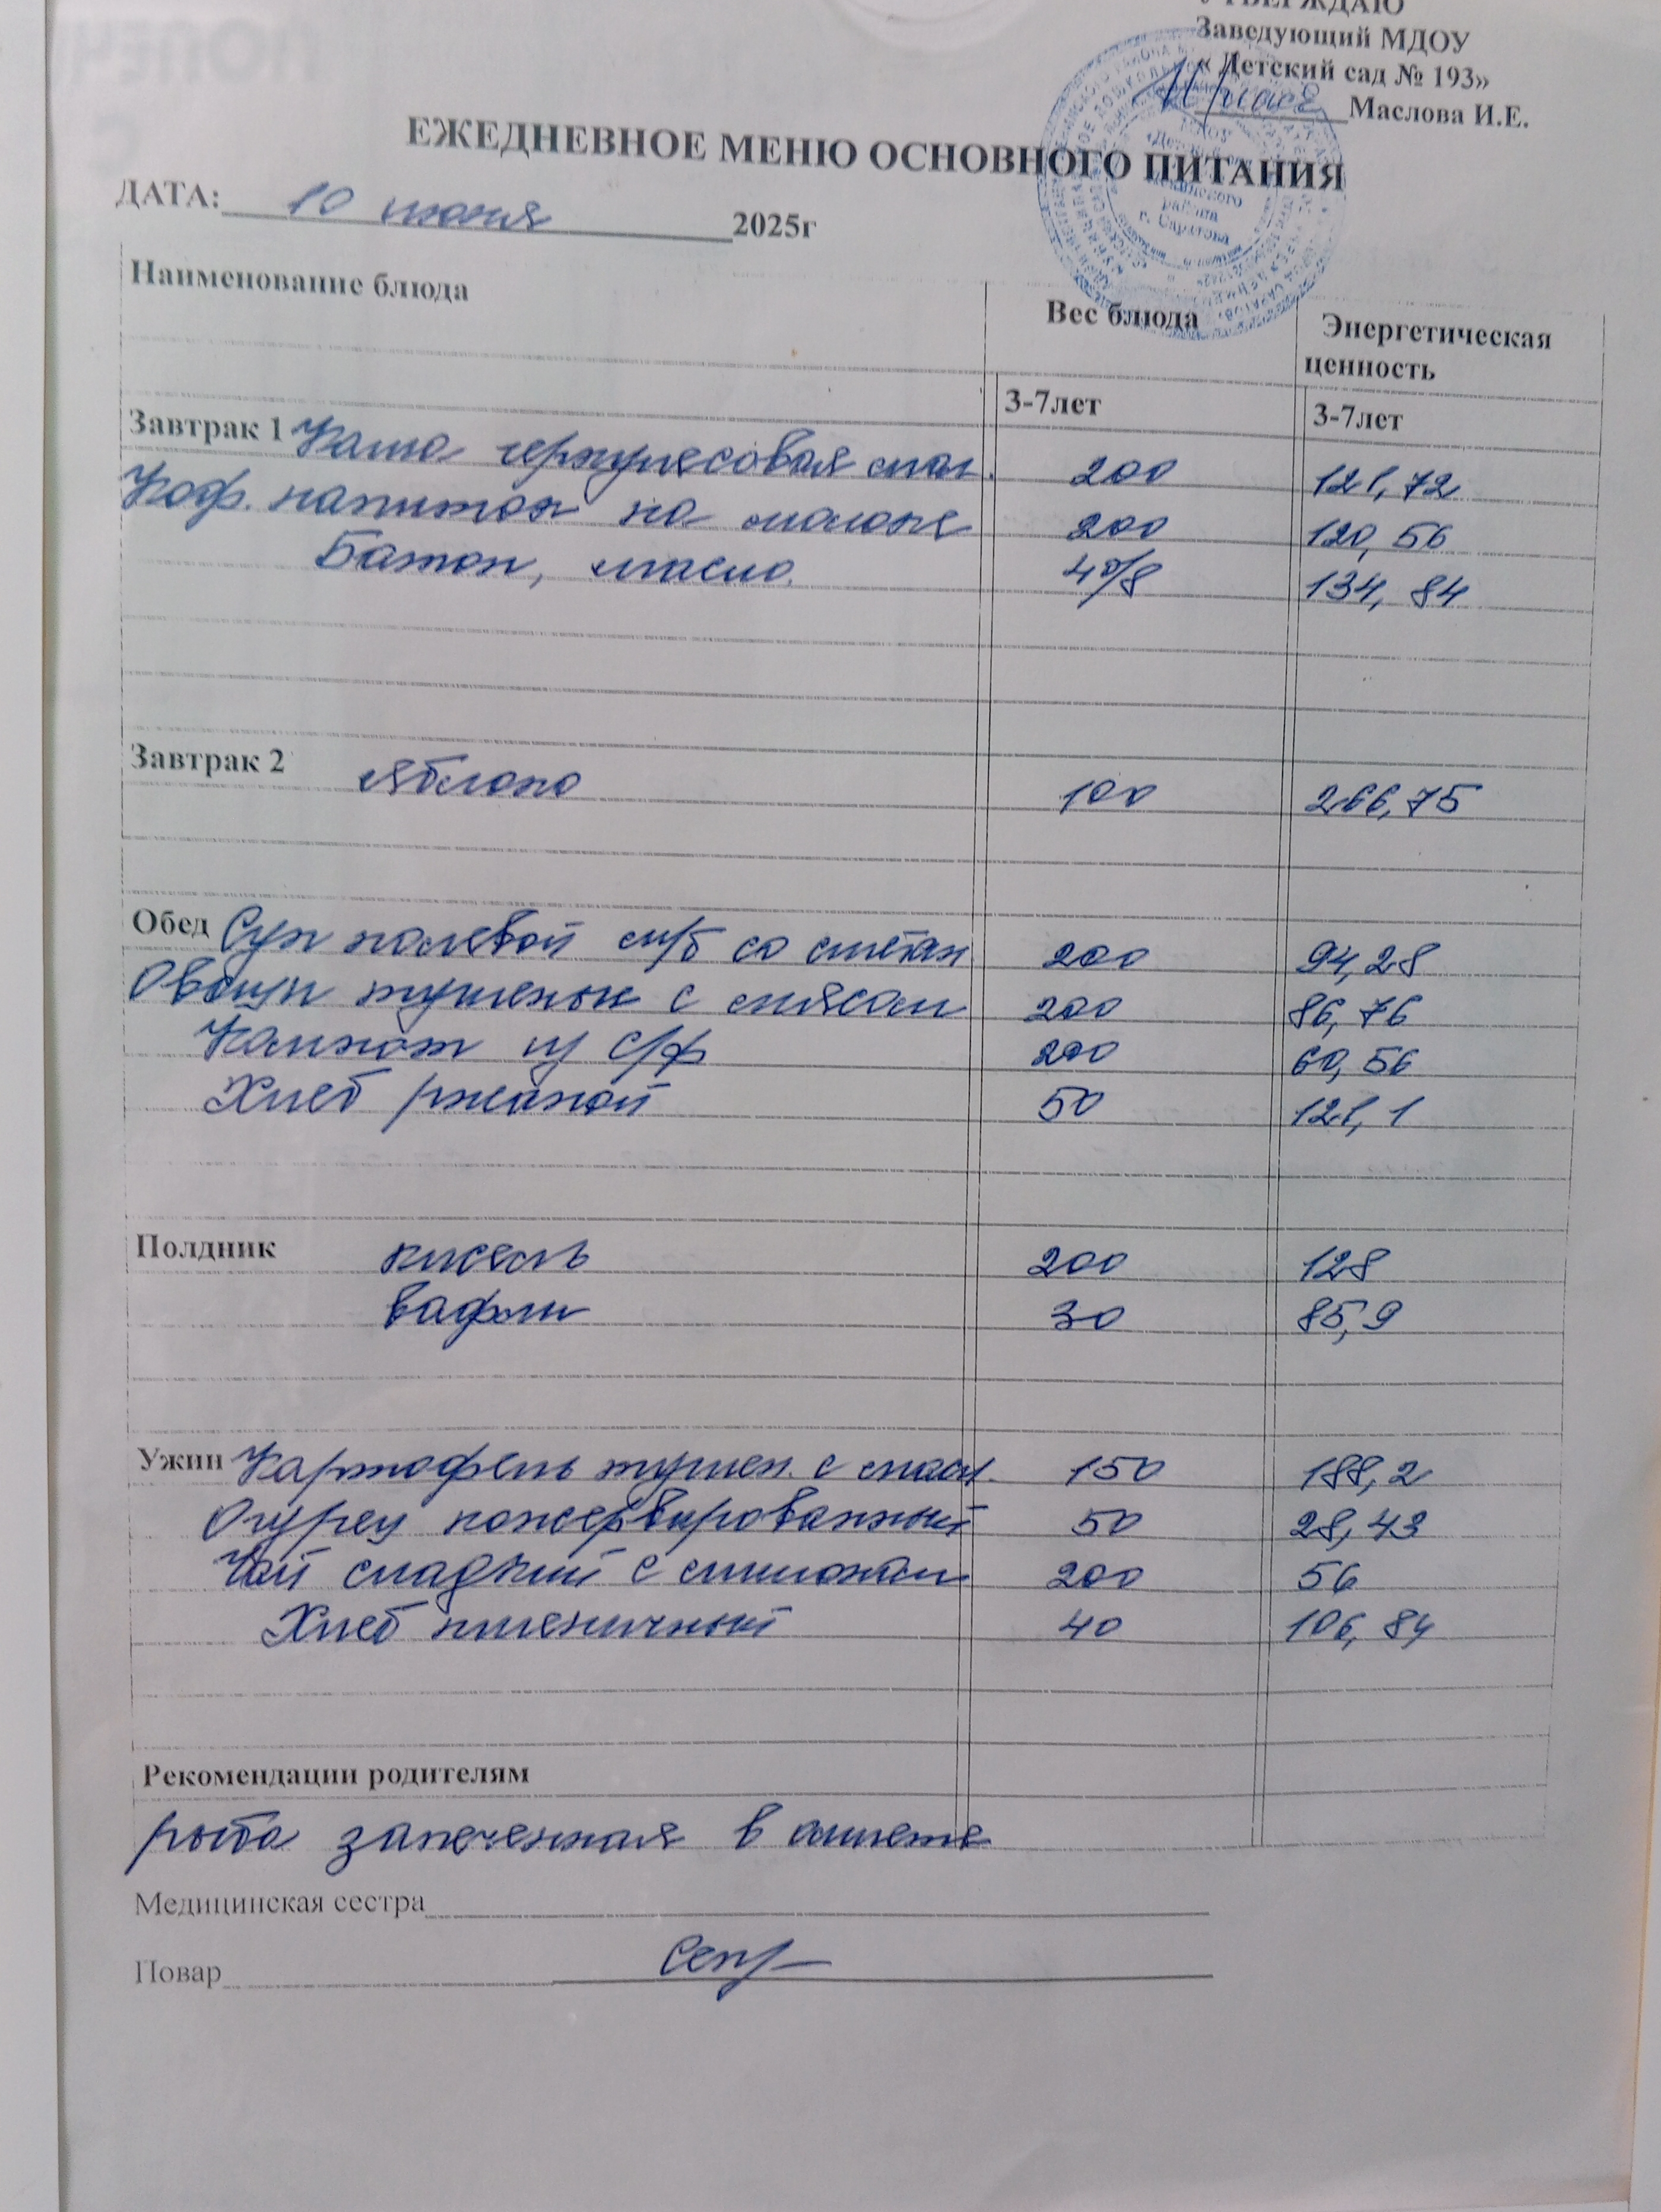 УТВЕРЖДАЮ
Заведующий МДОУ
« Детский сад № 193»
Маслова И.Е.
ЕЖЕДНЕВНОЕ МЕНЮ ОСНОВНОГО ПИТАНИЯ
ДАТА: 10 июня 2025г
Наименование блюда Вес блюда Энергетическая ценность
3-7лет 3-7лет
Завтрак 1 Каша геркулесовая мол. 200 121,72
Коф. напиток на молоке 200 120,56
Батон, масло. 40/8 134,84
Завтрак 2 Яблоко 100 266,75
Обед Суп полевой м/б со сметан 200 94,28
Овощи тушеные с мясом 200 86,76
Компот из с/ф 200 60,56
Хлеб ржаной 50 121,1
Полдник кисель 200 128
вафли 30 85,9
Ужин Картофель тушен. с масл. 150 188,2
Огурец консервированный 50 28,43
Чай сладкий с лимоном 200 56
Хлеб пшеничный 40 106,84
Рекомендации родителям
рыба запеченная в омлете
Медицинская сестра
Повар